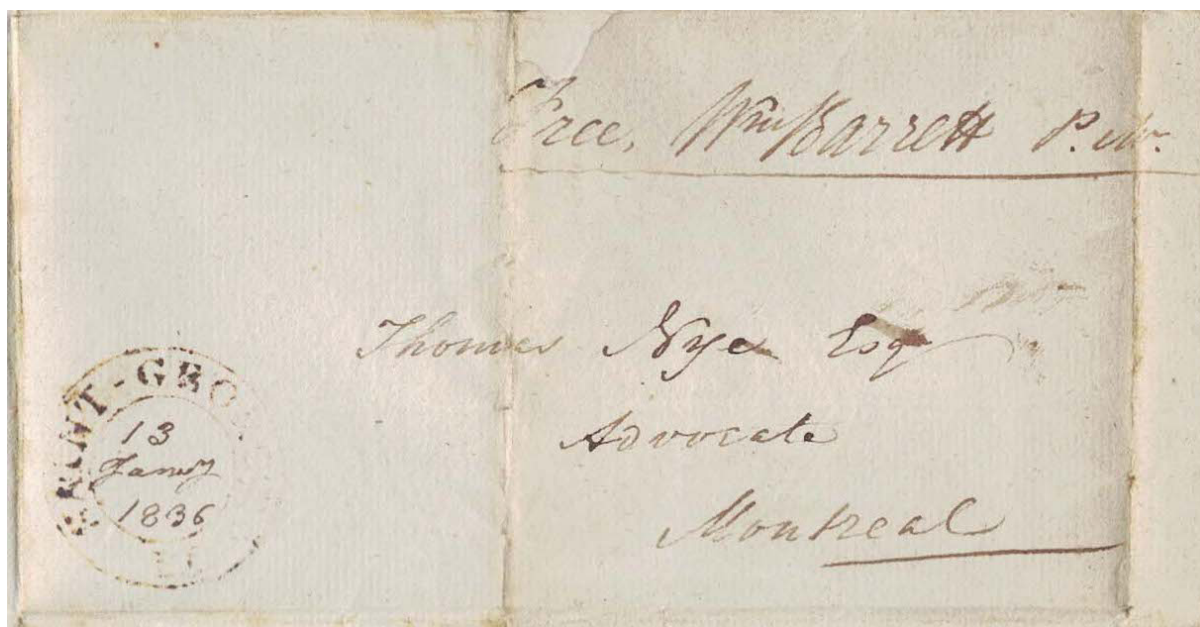 Free, Wm Barrett P.M.
Thomas Nye Esqr
Advocate
Montreal
13
Jany
1836